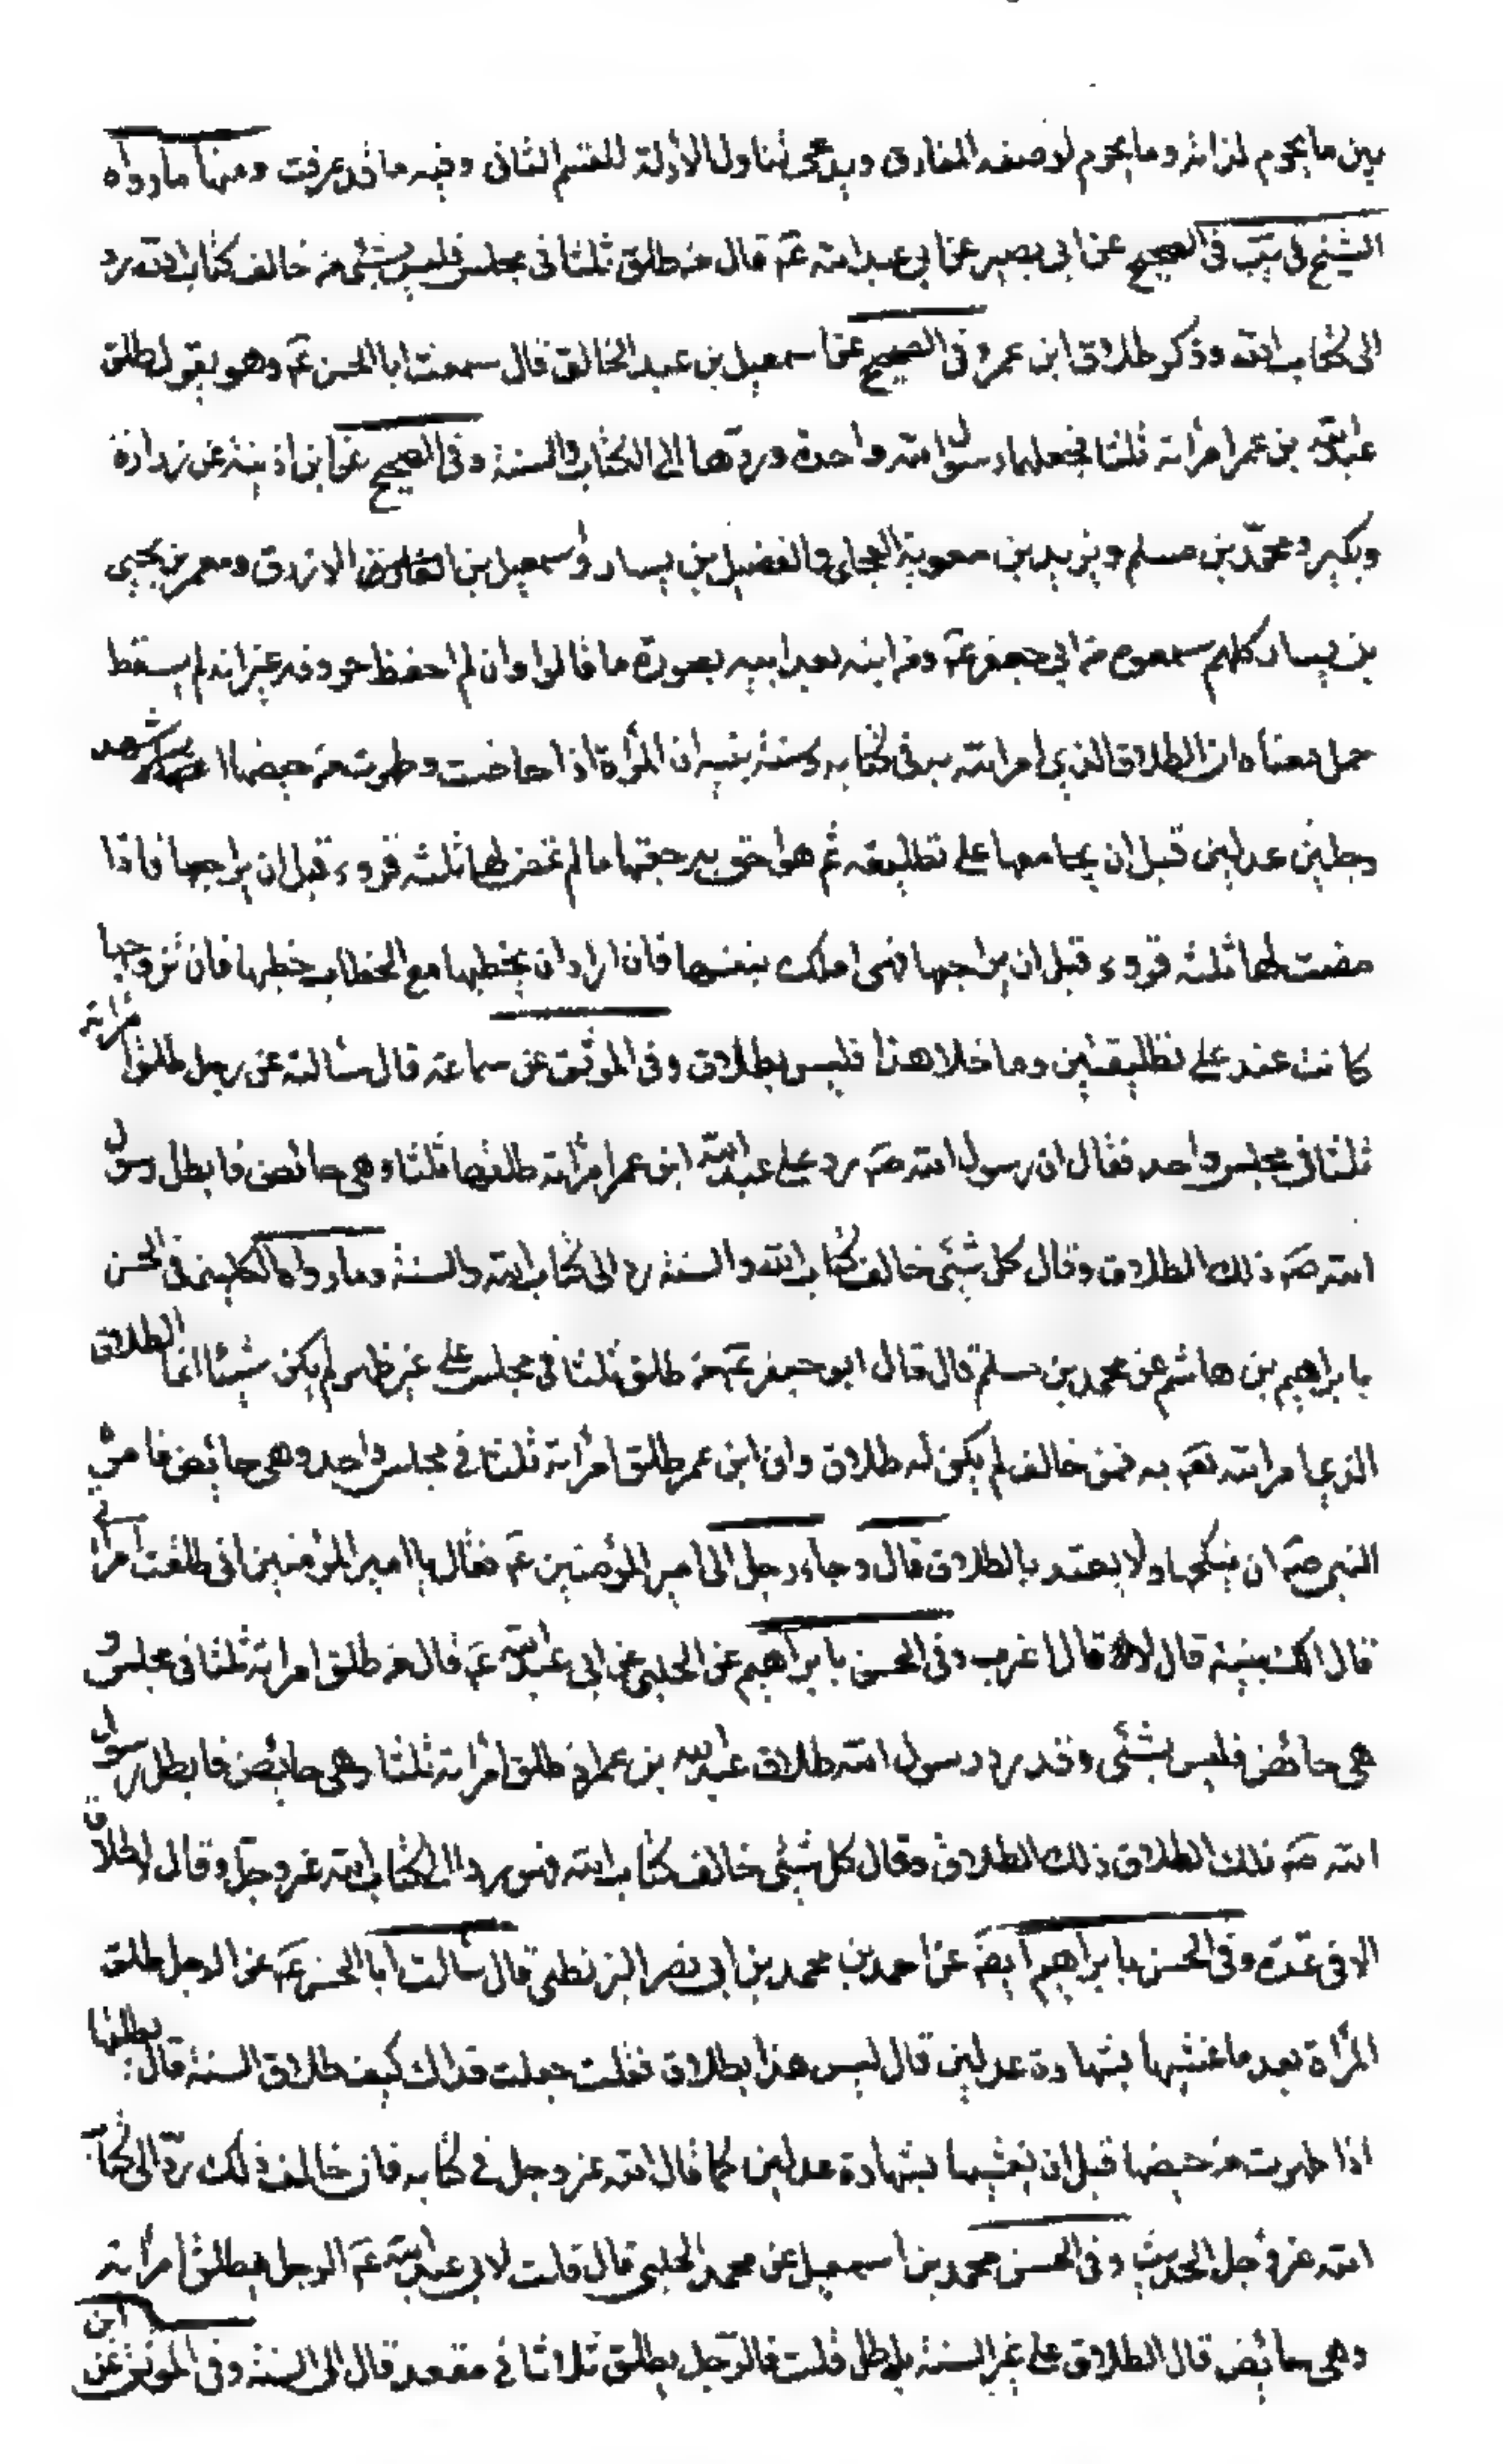 بين ما يحرم لذاته وما يحرم لوصفه المفارق ويدعى تناول الأدلة للقسم الثانى وفيه ما قد عرفت ومنها ما رواه
الشيخ فى يب فى الصحيح عن ابى بصير عن ابى عبد الله عم قال من طلق ثلثا فى مجلس فليس بشئ من خالف كتاب الله رد
الى كتاب الله وذكر طلاق ابن عمر وفى الصحيح عن اسمعيل بن عبد الخالق قال سمعت ابا الحسن عم وهو يقول طلق
عبد الله بن عمر امرأته ثلثا فجعلها رسول الله واحدة وردها الى الكتاب والسنة وفى الصحيح عن ابن اذينة عن زرارة
وبكير ومحمد بن مسلم وبريد بن معوية العجلى والفضيل بن يسار واسمعيل بن الازرق ومعمر بن يحيى
بن يسار كلهم سمعوه من ابى جعفر عم ومن ابنه بعد ابيه بصورة ما قالوا وان لم احفظ حروفه غير انه لم يسقط
حمل معناه ان الطلاق الذي امر الله به فى كتابه وسنة نبيه ان المرأة اذا حاضت وطهرت من حيضها اشهد
رجلين عدلين قبل ان يجامعها على تطليقة ثم هو احق برجعتها ما لم تمض لها ثلثة قروء قبل ان يراجعها فاذا
مضت لها ثلثة قروء قبل ان يراجعها فهى املك بنفسها فان اراد ان يخطبها مع الخطاب خطبها فان تزوجها
كانت عنده على تطليقتين وما خلا هذا فليس بطلاق وفى الموثق عن سماعة قال سألته عن رجل طلق امرأته
ثلثا فى مجلس واحد فقال ان رسول الله صم رد على عبد الله ابن عمر امرأته طلقها ثلثا وهى حائض فابطل رسول
الله صم ذلك الطلاق وقال كل شئ خالف كتاب الله والسنة رد الى كتاب الله والسنة وما رواه الكلينى فى الحسن
بابراهيم بن هاشم عن محمد بن مسلم قال قال ابو جعفر عم من طلق ثلثا فى مجلس على غير طهر لم يكن شيئا انما الطلاق
الذي امر الله به فمن خالف لم يكن له طلاق وان ابن عمر طلق امرأته ثلثا في مجلس واحد وهى حائض فامره
النبى صم ان ينكحها ولا يعتد بالطلاق قال وجاء رجل الى امير المؤمنين عم فقال يا امير المؤمنين انى طلقت امرأتى
قال الك بينة قال لا قال اغرب وفى الحسن بابراهيم عن الحلبى عن ابى عبد الله عم قال من طلق امرأته ثلثا فى مجلس و
هى حائض فليس بشئى وقد رد رسول الله طلاق عبد الله بن عمر اذ طلق امرأته ثلثا وهى حايض فابطل رسول
الله صم ذلك الطلاق ذلك الطلاق وقال كل شئى خالف كتاب الله فهو رد الى كتاب الله عز وجل وقال لا طلاق
الا فى عدة وفى الحسن بابراهيم ايضا عن احمد بن محمد بن ابى نصر البزنطى قال سألت ابا الحسن عم عن الرجل طلق
المرأة بعد ما غشيها بشهادة عدلين قال ليس هذا بطلاق فقلت جعلت فداك كيف طلاق السنة قال يطلقها
اذا طهرت من حيضها قبل ان يغشيها بشهادة عدلين كما قال الله عز وجل في كتابه فان خالف ذلك رد الى كتاب
الله عز وجل الحديث وفى الحسن محمد بن اسمعيل عن محمد الحلبى قال قلت لابى عبد الله عم الرجل يطلق امرأته
وهى حائض قال الطلاق على غير السنة باطل قلت فالرجل يطلق ثلاثا في مقعد قال الى السنة وفى الموثق عن ابن